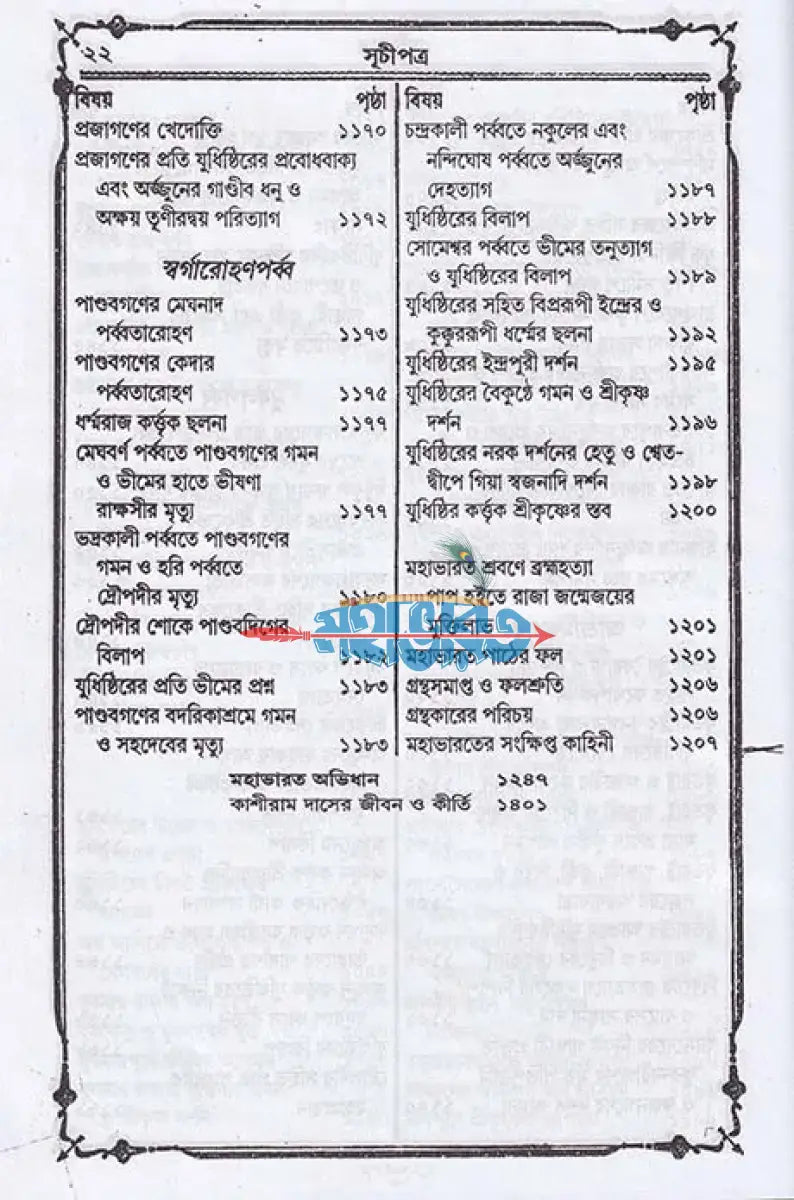 ২২
সূচীপত্র
বিষয় পৃষ্ঠা
প্রজাগণের খেদোক্তি ১১৭০
প্রজাগণের প্রতি যুধিষ্ঠিরের প্রবোধবাক্য
এবং অর্জ্জুনের গাণ্ডীব ধনু ও
অক্ষয় তূণীরদ্বয় পরিত্যাগ ১১৭২
স্বর্গারোহণপর্ব্ব
পাণ্ডবগণের মেঘনাদ
পর্ব্বতারোহণ ১১৭৩
পাণ্ডবগণের কেদার
পর্ব্বতারোহণ ১১৭৫
ধর্ম্মরাজ কর্ত্তৃক ছলনা ১১৭৭
মেঘবর্ণ পর্ব্বতে পাণ্ডবগণের গমন
ও ভীমের হাতে ভীষণা
রাক্ষসীর মৃত্যু ১১৭৭
ভদ্রকালী পর্ব্বতে পাণ্ডবগণের
গমন ও হরি পর্ব্বতে
দ্রৌপদীর মৃত্যু ১১৮০
দ্রৌপদীর শোকে পাণ্ডবদিগের
বিলাপ ১১৮২
যুধিষ্ঠিরের প্রতি ভীমের প্রশ্ন ১১৮৩
পাণ্ডবগণের বদরিকাশ্রমে গমন
ও সহদেবের মৃত্যু ১১৮৩
বিষয় পৃষ্ঠা
চন্দ্রকালী পর্ব্বতে নকুলের এবং
নন্দিঘোষ পর্ব্বতে অর্জ্জুনের
দেহত্যাগ ১১৮৭
যুধিষ্ঠিরের বিলাপ ১১৮৮
সোমেশ্বর পর্ব্বতে ভীমের তনুত্যাগ
ও যুধিষ্ঠিরের বিলাপ ১১৮৯
যুধিষ্ঠিরের সহিত বিপ্ররূপী ইন্দ্রের ও
কুক্কুররূপী ধর্ম্মের ছলনা ১১৯২
যুধিষ্ঠিরের ইন্দ্রপুরী দর্শন ১১৯৫
যুধিষ্ঠিরের বৈকুণ্ঠে গমন ও শ্রীকৃষ্ণ
দর্শন ১১৯৬
যুধিষ্ঠিরের নরক দর্শনের হেতু ও শ্বেত-
দ্বীপে গিয়া স্বজনাদি দর্শন ১১৯৮
যুধিষ্ঠির কর্ত্তৃক শ্রীকৃষ্ণের স্তব ১২০০
মহাভারত শ্রবণে ব্রহ্মহত্যা
পাপ হইতে রাজা জন্মেজয়ের
মুক্তিলাভ ১২০১
মহাভারত পাঠের ফল ১২০১
গ্রন্থসমাপ্ত ও ফলশ্রুতি ১২০৬
গ্রন্থকারের পরিচয় ১২০৬
মহাভারতের সংক্ষিপ্ত কাহিনী ১২০৭
মহাভারত
মহাভারত অভিধান ১২৪৭
কাশীরাম দাসের জীবন ও কীর্তি ১৪০১